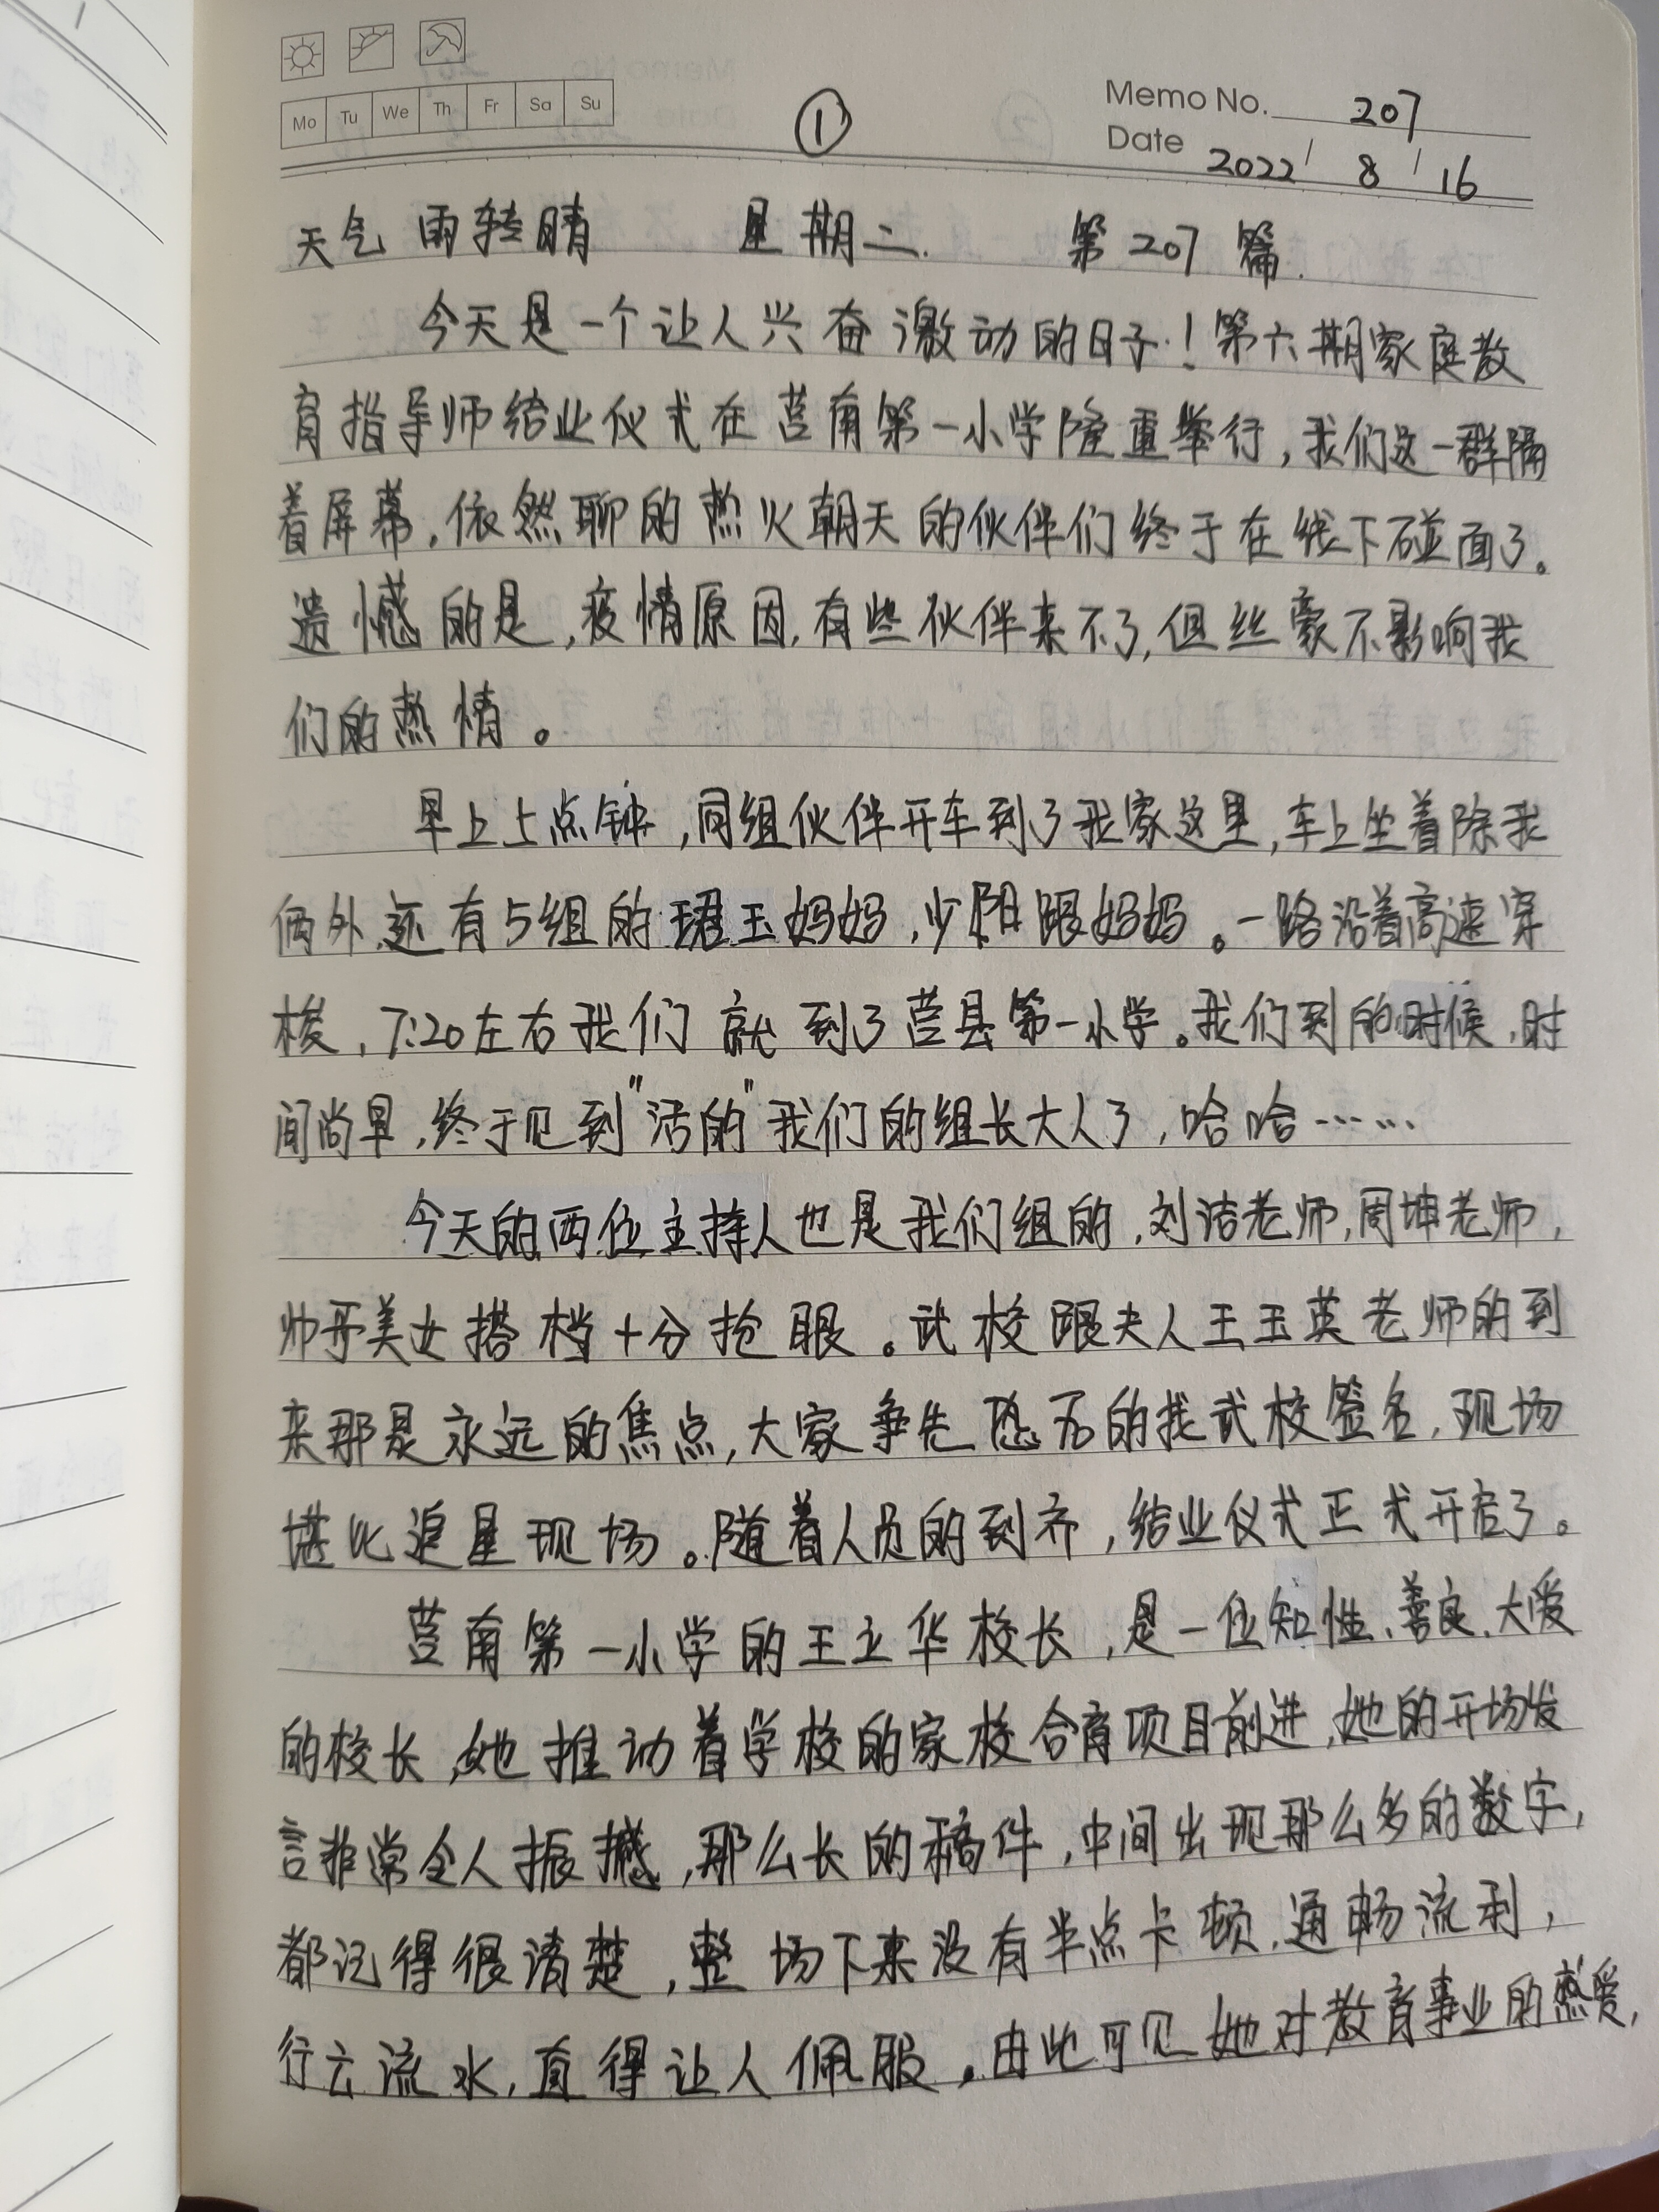 Mo Tu We Th Fr Sa Su
①
Memo No. 207
Date 2022 / 8 / 16
天气 雨转晴 星期二. 第207篇.
今天是一个让人兴奋激动的日子!第六期家庭教
育指导师结业仪式在莒南第一小学隆重举行,我们这一群隔
着屏幕,依然聊的热火朝天的伙伴们终于在线下碰面了。
遗憾的是,疫情原因,有些伙伴来不了,但丝豪不影响我
们的热情。
早上上点钟,同组伙伴开车到了我家这里,车上坐着除我
俩外,还有5组的珺玉妈妈,少阳跟妈妈。一路沿着高速穿
梭,7:20左右我们就到了莒县第一小学。我们到的时候,时
间尚早,终于见到"活的"我们的组长大人了,哈哈……
今天的两位主持人也是我们组的,刘洁老师,周坤老师,
帅哥美女搭档十分抢眼。武校跟夫人王玉英老师的到
来那是永远的焦点,大家争先恐后的找武校签名,现场
堪比追星现场。随着人员的到齐,结业仪式正式开启了。
莒南第一小学的王立华校长,是一位知性、善良、大爱
的校长,她推动着学校的家校合育项目前进,她的开场发
言非常令人振撼,那么长的稿件,中间出现那么多的数字,
都记得很清楚,整场下来没有半点卡顿,通畅流利,
行云流水,直得让人佩服。由此可见她对教育事业的热爱,